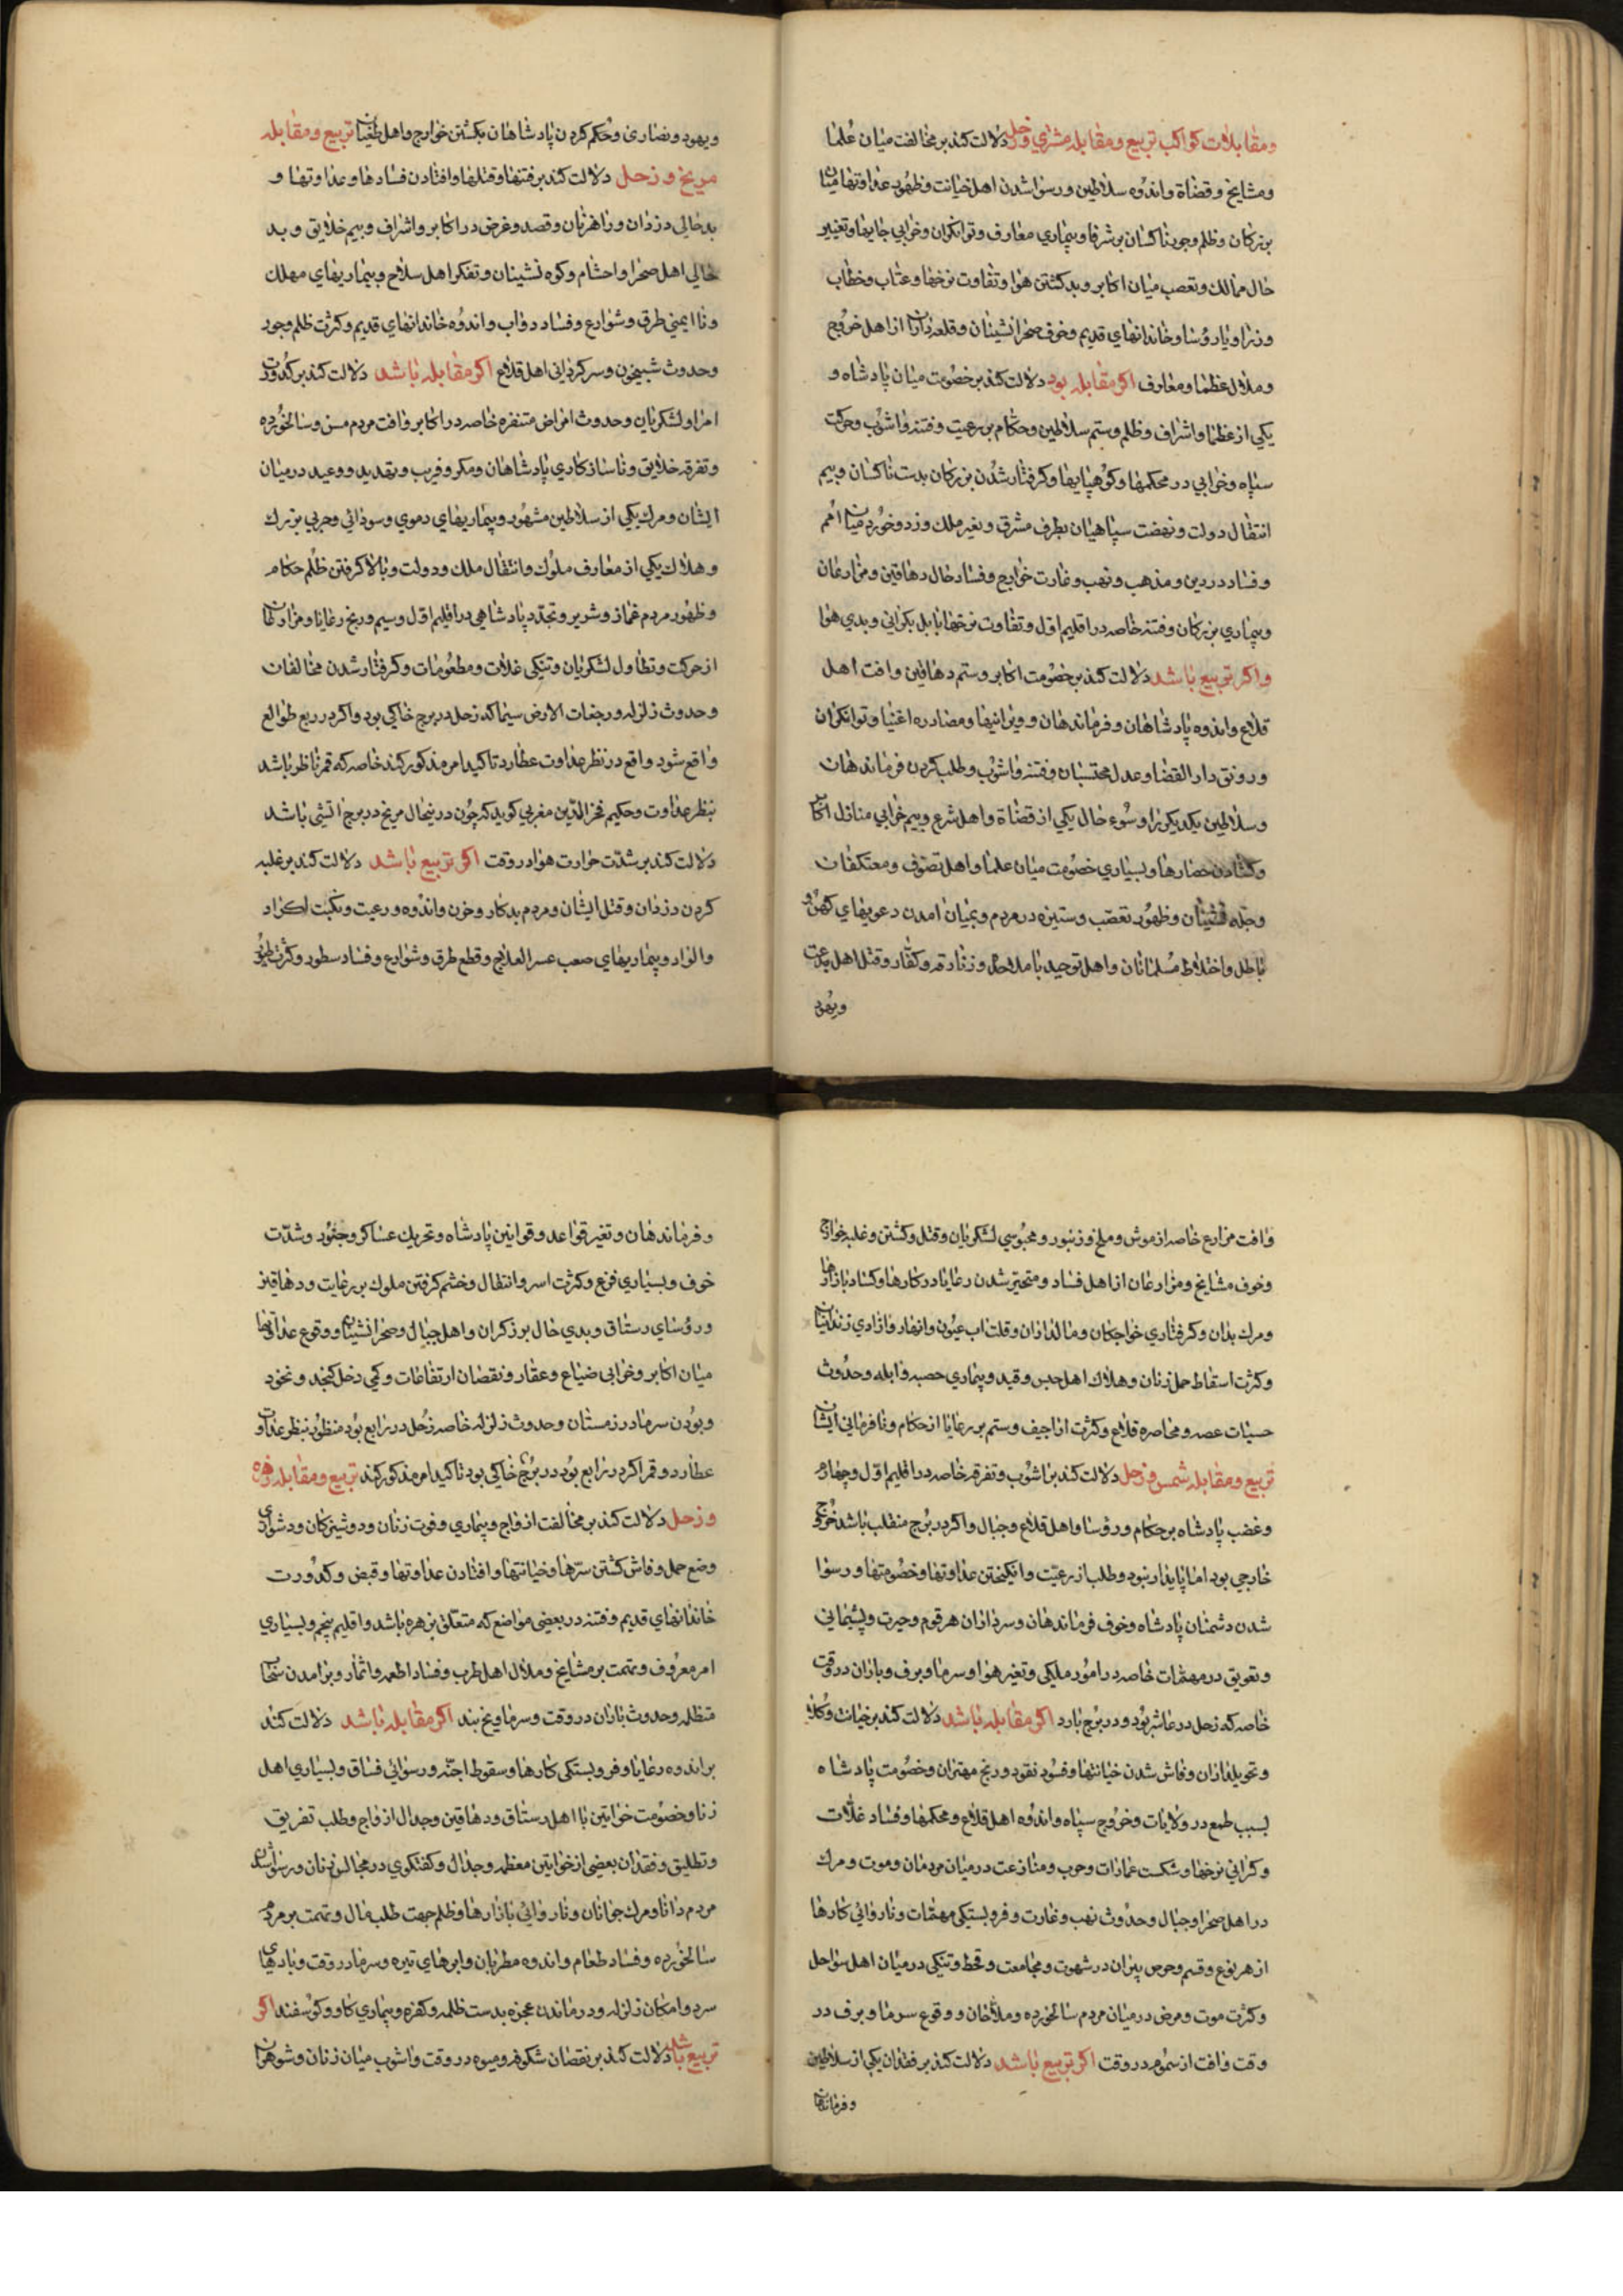 ومقابلات کواکب تربیع ومقابله مشتری وزحل دلالت کند بر مخالفت میان علما
ومشایخ وقضاة واندوه سلاطین ورسوا شدن اهل خیانت وظهور عداوتها میان
بزرکان وظلم وجور ناکسان بر شرفا وبیماری معارف وتوانکران وخرابی جایها وتغییر
حال ممالک وتعصب میان اکابر وبد کشتن هوا وتفاوت نرخها وعتاب وخطاب
وزرا ویا رؤسا وخاندانهای قدیم وخوف صحرانشینان وقلعه داران از اهل خروج
وملال عظما ومعارف اکر مقابله بود دلالت کند بر خصومت میان پادشاه و
یکی از عظما واشراف وظلم وستم سلاطین وحکام بر رعیت وفتنه واشوب وحرکت
سپاه وخرابی در محکمها وکوهپایها وکرفتار شدن بزرکان بدست ناکسان وبیم
انتقال دولت ونهضت سپاهیان بطرف مشرق وتغیر ملک وزد وخورد میان امم
وفساد در دین ومذهب ونهب وغارت خوارج وفساد حال دهاقین ومزارعان
وبیماری بزرکان وفتنه خاصه در اقلیم اول وتفاوت نرخها بابل بکرانی وبدی هوا
واکر تربیع باشد دلالت کند بر خصومت اکابر وستم دهاقین وافت اهل
قلاع واندوه پادشاهان وفرماندهان وویرانیها ومصادره اغنیا وتوانکران
ورونق دار القضا وعدل محتسبان وفتنه واشوب وطلب کردن فرماندهان
وسلاطین یکدیکر را وسوء حال یکی از قضاة واهل شرع وبیم خرابی منازل اکابر
وکشادن حصارها وبسیاری خصومت میان علما واهل تصوف ومعتکفان
وچله نشینان وظهور تعصب وستیزه در مردم وبمیان امدن دعویهای کهن و
باطل واختلاط مسلمانان واهل توحید با ملاحده وزنادقه وکفار وقتل اهل بدعت
ویهود
ویهود ونصاری وحکم کردن پادشاهان بکشتن خوارج واهل طغیان تربیع ومقابله
مریخ وزحل دلالت کند بر فتنها وقتلها وافتادن فسادها وعداوتها و
بدحالی دزدان وراهزنان وقصد وغرض در اکابر واشراف وبیم خلایق وبد
حالی اهل صحرا واحشام وکوه نشینان وتفکر اهل سلاح وبیماریهای مهلک
وناایمنی طرق وشوارع وفساد دواب واندوه خاندانهای قدیم وکثرت ظلم وجور
وحدوث شبیخون وسرکردانی اهل قلاع اکر مقابله باشد دلالت کند بر کدورت
امرا ولشکریان وحدوث امراض متنفره خاصه در اکابر وافت مردم مسن وسالخورده
وتفرقه خلایق وناسازکاری پادشاهان ومکر وفریب وتهدید ووعید در میان
ایشان ومرک یکی از سلاطین مشهور وبیماریهای دموی وسودائی وحربی بزرک
وهلاک یکی از معارف ملوک وانتقال ملک ودولت وبالا کرفتن ظلم حکام
وظهور مردم غماز وشریر وتجدد پادشاهی در اقلیم اول وسیم ورنج رعایا ومزارعان
از حرکت وتطاول لشکریان وتنکی غلات ومطعومات وکرفتار شدن مخالفان
وحدوث زلزله ورجفات الارض سیما که زحل در برج خاکی بود واکر در ربع طوالع
واقع شود واقع در نظر عداوت عطارد تاکید امر مذکور کند خاصه که قمر ناظر باشد
بنظر عداوت وحکیم فخر الدین مغربی کوید که چون در ینحال مریخ در برج اتشی باشد
دلالت کند بر شدت حرارت هوا در وقت اکر تربیع باشد دلالت کند بر غلبه
کردن دزدان وقتل ایشان ومردم بدکار وحزن واندوه ورعیت ونکبت اکراد
والواد وبیماریهای صعب عسر العلاج وقطع طرق وشوارع وفساد سطور وکثرت طیور
وافت مزارع خاصه از موش وملخ وزنبور ومحبوسی لشکریان وقتل وکشتن وغلبه خوارج
وخوف مشایخ ومزارعان از اهل فساد ومتحیر شدن رعایا در کارها وکساد بازارها
ومرک بدان وکرفتاری خواجکان ومالداران وقلت اب عیون وانهار وازادی زندانیان
وکثرت اسقاط حمل زنان وهلاک اهل حبس وقید وبیماری حصبه وابله وحدوث
حسیات عصر ومحاصره قلاع وکثرت اراجیف وستم بر رعایا از حکام ونافرمانی ایشان
تربیع ومقابله شمس وزحل دلالت کند بر اشوب وتفرقه خاصه در اقلیم اول وچهارم
وغضب پادشاه بر حکام ورؤسا واهل قلاع وجبال واکر در برج منقلب باشد خروج
خارجی بود اما پایدار نبود وطلب از رعیت وانکیختن عداوتها وخصومتها ورسوا
شدن دشمنان پادشاه وخوف فرماندهان وسرداران هر قوم وحیرت وپشیمانی
وتعویق در مهمات خاصه در امور ملکی وتغیر هوا وسرما وبرف وباران در وقت
خاصه که زحل در عاشر بود ودر برج بارد اکر مقابله باشد دلالت کند بر خیانت وکلا
وتحویلداران وفاش شدن خیانتها وفسود نقود ورنج مهتران وخصومت پادشاه
بسبب طمع در ولایات وخروج سپاه واندوه اهل قلاع ومحکمها وفساد غلات
وکرانی نرخها وشکست عمارات وحرب ومنازعت در میان مردمان وموت ومرک
در اهل صحرا وجبال وحدوث نهب وغارت وفروبستکی مهمات وناروائی کارها
از هر نوع وقسم وحرص پیران در شهوت ومجامعت وقحط وتنکی در میان اهل سواحل
وکثرت موت ومرض در میان مردم سالخورده وملاحان ووقوع سرما وبرف در
وقت وافت از سموم در وقت اکر تربیع باشد دلالت کند بر فقدان یکی از سلاطین
وفرماندهان
وفرماندهان وتغیر قواعد وقوانین پادشاه وتحریک عساکر وجنود وشدت
خوف وبسیاری فزع وکثرت اسر وانتظال وخشم کرفتن ملوک بر رعایت ودهاقین
ورؤسای رستاق وبدی حال بوزکران واهل جبال وصحرانشینان ووقوع عداوتها
میان اکابر وخرابی ضیاع وعقار ونقصان ارتفاعات وکمی دخل کنجد ونخود
وبودن سرما در زمستان وحدوث زلزله خاصه زحل در رابع بود منظور بنظر عداوت
عطارد وقمر اکر در رابع بود در برج خاکی بود تاکید امر مذکور کند تربیع ومقابله زهره
وزحل دلالت کند بر مخالفت ازواج وبیماری وفوت زنان ودوشیزکان ودشواری
وضع حمل وفاش کشتن سرها وخیانتها وافتادن عداوتها وقبض وکدورت
خاندانهای قدیم وفتنه در بعضی مواضع که متعلق بزهره باشد واقلیم پنجم وبسیاری
امر معروف وتهمت بر مشایخ وملال اهل طرب وفساد اطعمه واثمار وبرامدن سحاب
متظله وحدوث باران در وقت وسرما ویخ بند اکر مقابله باشد دلالت کند
بر اندوه رعایا وفروبستکی کارها وسقوط اجنه ورسوائی فساق وبسیاری اهل
زنا وخصومت خواتین با اهل رستاق ودهاقین وجدال ازواج وطلب تفریق
وتطلیق وفقدان بعضی از خواتین معظمه وجدال وکفتکوی در مجالس زنان ورسوا شدن
مردم دانا ومرک جوانان وناروائی بازارها وظلم جهت طلب مال وتهمت بر مردم
سالخورده وفساد طعام واندوه مطربان وابرهای تیره وسرما در وقت وبادهای
سرد وامکان زلزله ودرماندن عجزه بدست ظلمه وکفره وبیماری کاو وکوسفند اکر
تربیع باشد دلالت کند بر نقصان شکوفه ومیوه در وقت واشوب میان زنان وشوهران